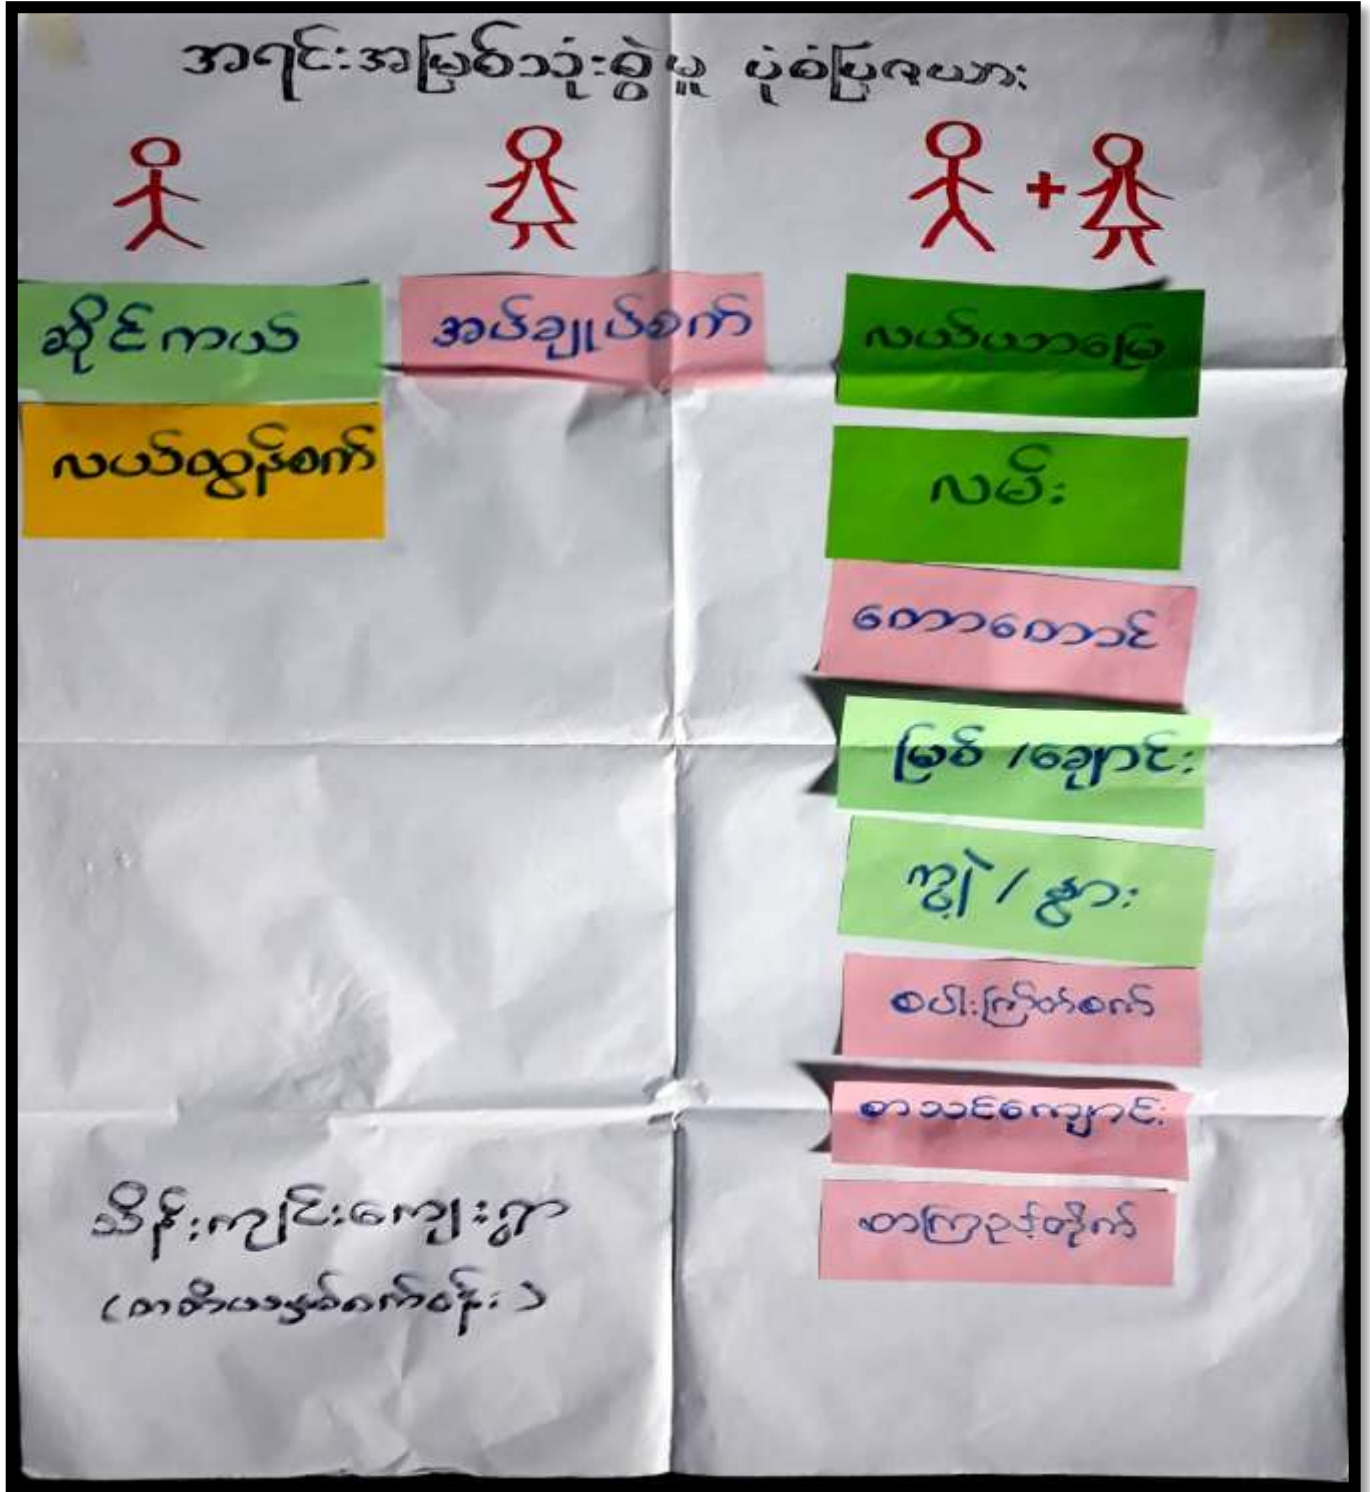 အရင်းအမြစ်သုံးစွဲမှု ပုံစံပြဇယား
+
ဆိုင်ကယ်
လယ်ထွန်စက်
အပ်ချုပ်စက်
လယ်ယာမြေ
လမ်း
တောတောင်
မြစ် /ချောင်း
ကျွဲ / နွား
စပါးကြိတ်စက်
စာသင်ကျောင်း
စာကြည့်တိုက်
သိန်းကျင်းကျေးရွာ
(တတိယနှစ်စက်ဝန်း)